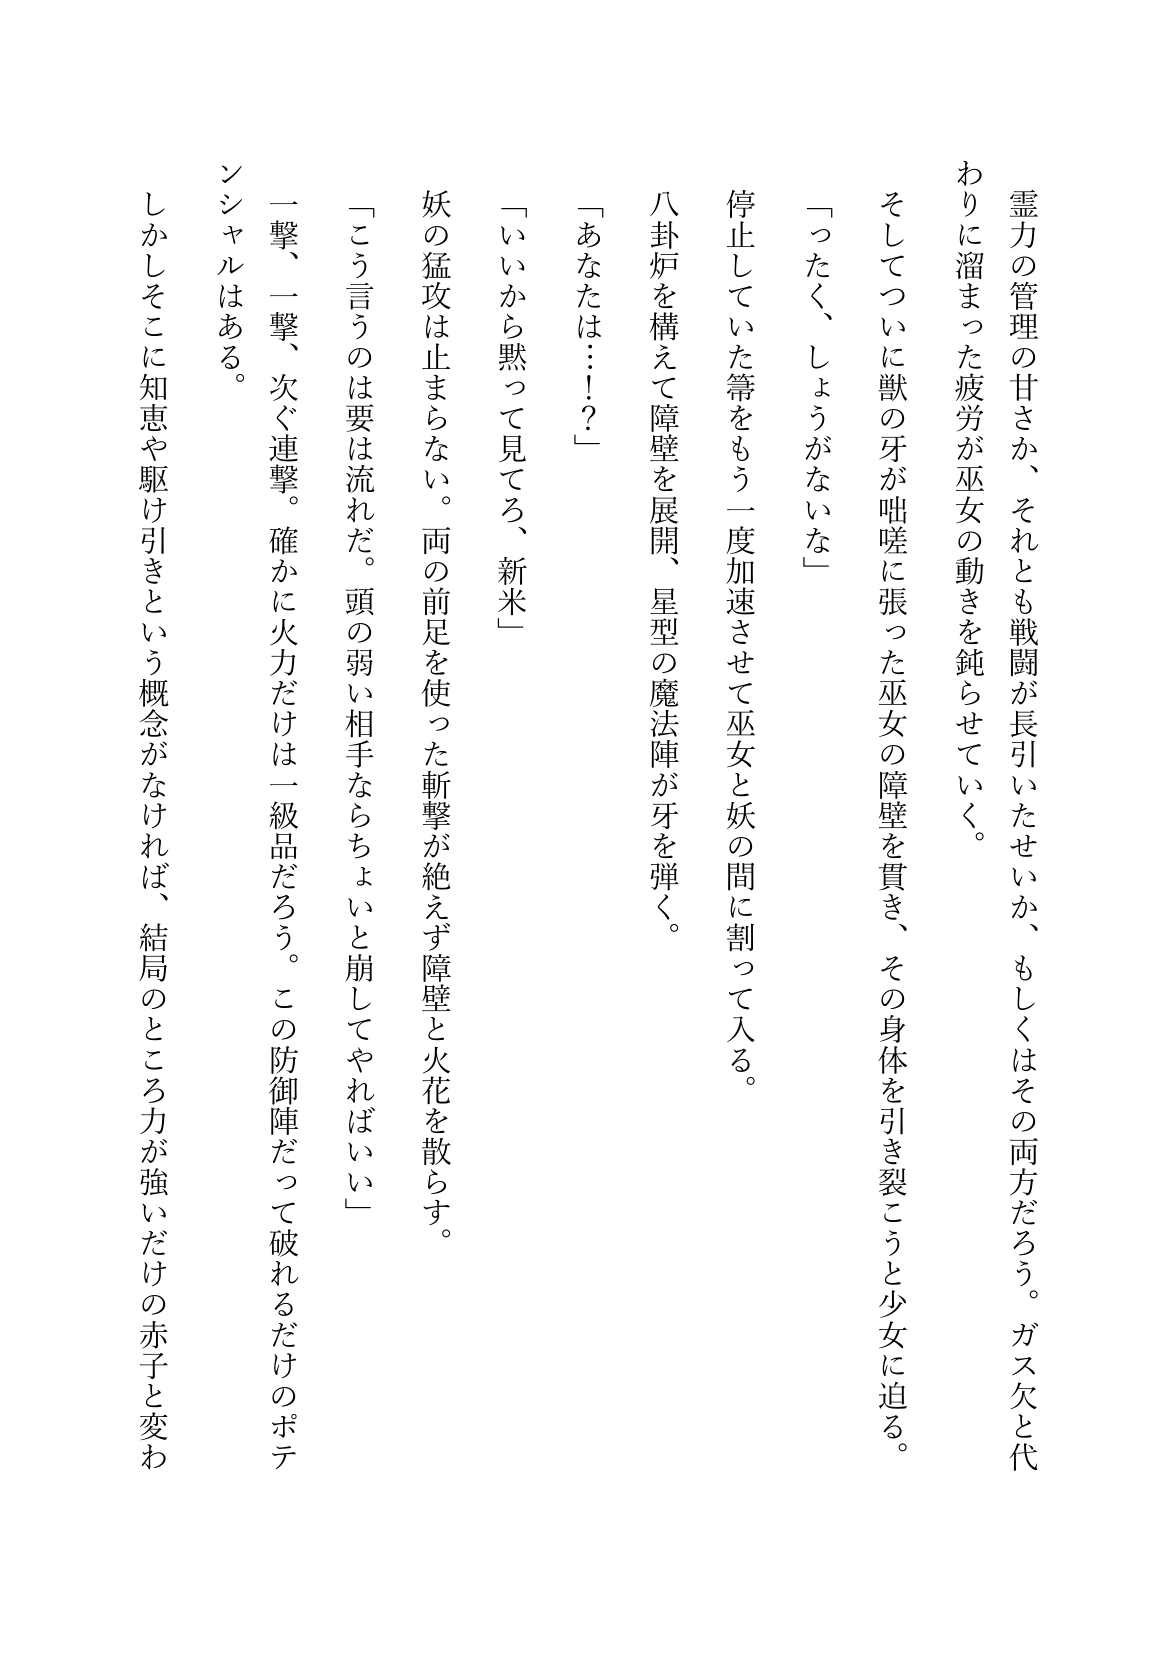 霊力の管理の甘さか、それとも戦闘が長引いたせいか、もしくはその両方だろう。ガス欠と代
わりに溜まった疲労が巫女の動きを鈍らせていく。
そしてついに獣の牙が咄嗟に張った巫女の障壁を貫き、その身体を引き裂こうと少女に迫る。
「ったく、しょうがないな」
停止していた箒をもう一度加速させて巫女と妖の間に割って入る。
八卦炉を構えて障壁を展開、星型の魔法陣が牙を弾く。
「あなたは…！？」
「いいから黙って見てろ、新米」
妖の猛攻は止まらない。両の前足を使った斬撃が絶えず障壁と火花を散らす。
「こう言うのは要は流れだ。頭の弱い相手ならちょいと崩してやればいい」
一撃、一撃、次ぐ連撃。確かに火力だけは一級品だろう。この防御陣だって破れるだけのポテ
ンシャルはある。
しかしそこに知恵や駆け引きという概念がなければ、結局のところ力が強いだけの赤子と変わ